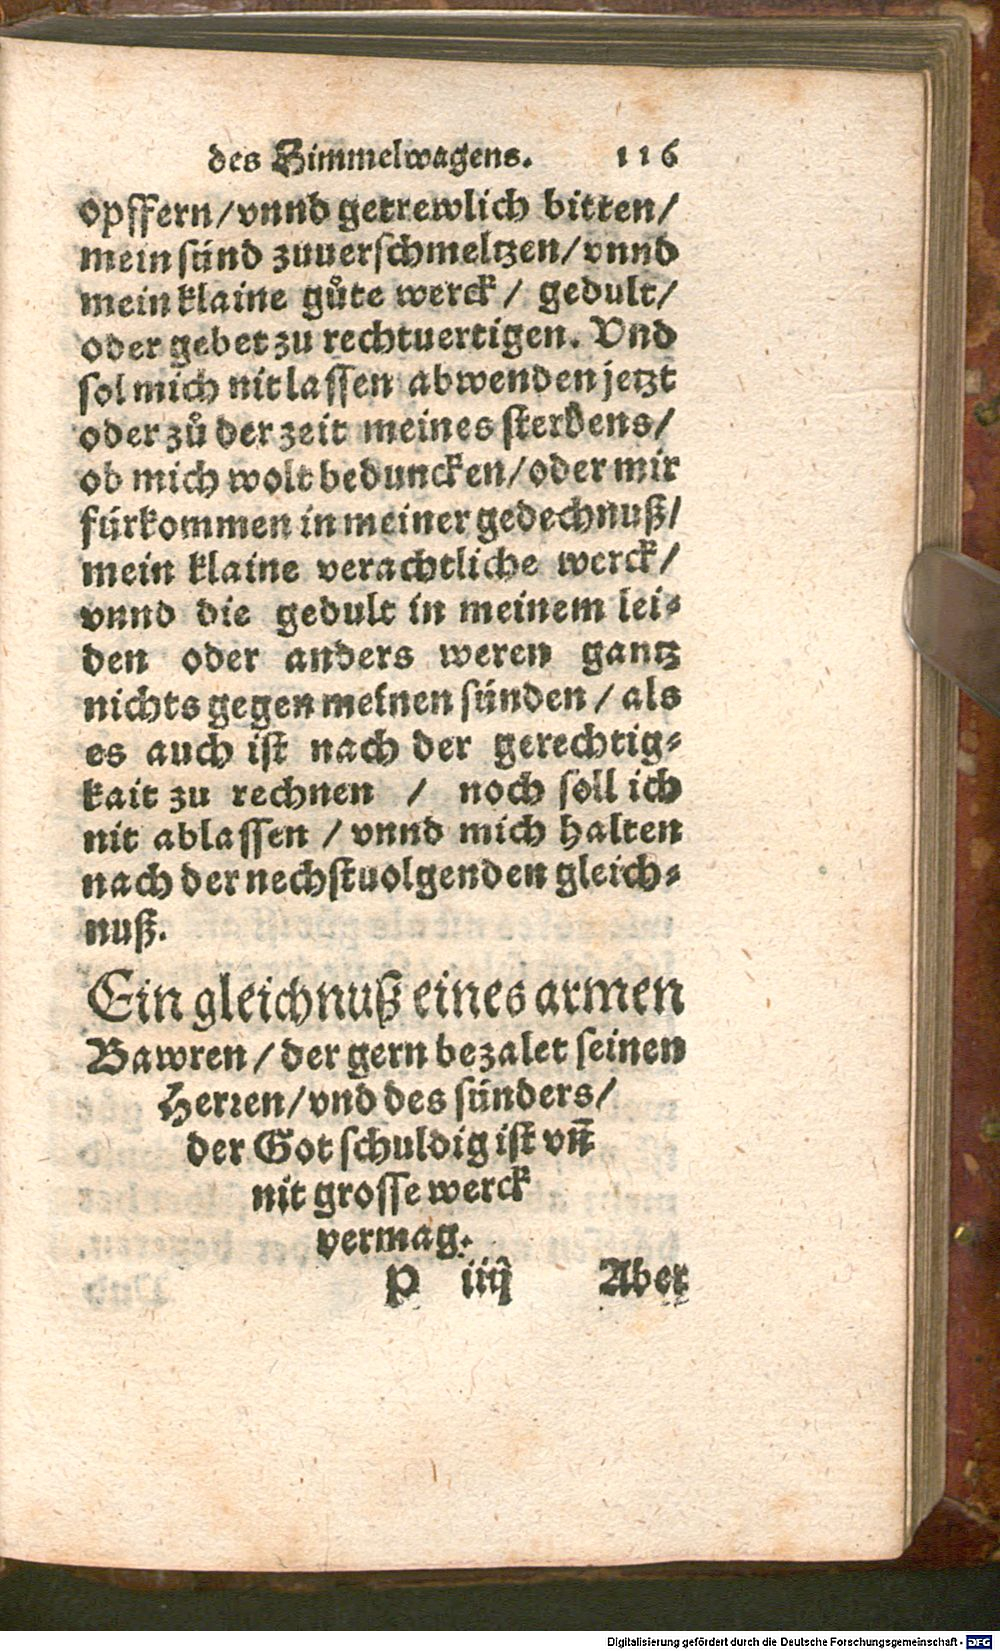 des Himmelwagens. 116
opffern/vnnd getrewlich bitten/
mein sünd zuuerschmeltzen/vnnd
mein klaine gůte werck/ gedult/
oder gebet zu rechtuertigen. Vnd
sol mich nit lassen abwenden jetzt
oder zů der zeit meines sterbens/
ob mich wolt beduncken/oder mir
fürkommen in meiner gedechnuß/
mein klaine verachtliche werck/
vnnd die gedult in meinem lei-
den oder anders weren gantz
nichts gegen meinen sünden/als
es auch ist nach der gerechtig-
kait zu rechnen / noch soll ich
nit ablassen /vnnd mich halten
nach der nechstuolgenden gleich-
nuß.
Ein gleichnuß eines armen
Bawren/der gern bezalet seinen
Herren/vnd des sünders/
der Got schuldig ist vñ
nit grosse werck
vermag.
P iiij Aber
Digitalisierung gefördert durch die Deutsche Forschungsgemeinschaft - DFG